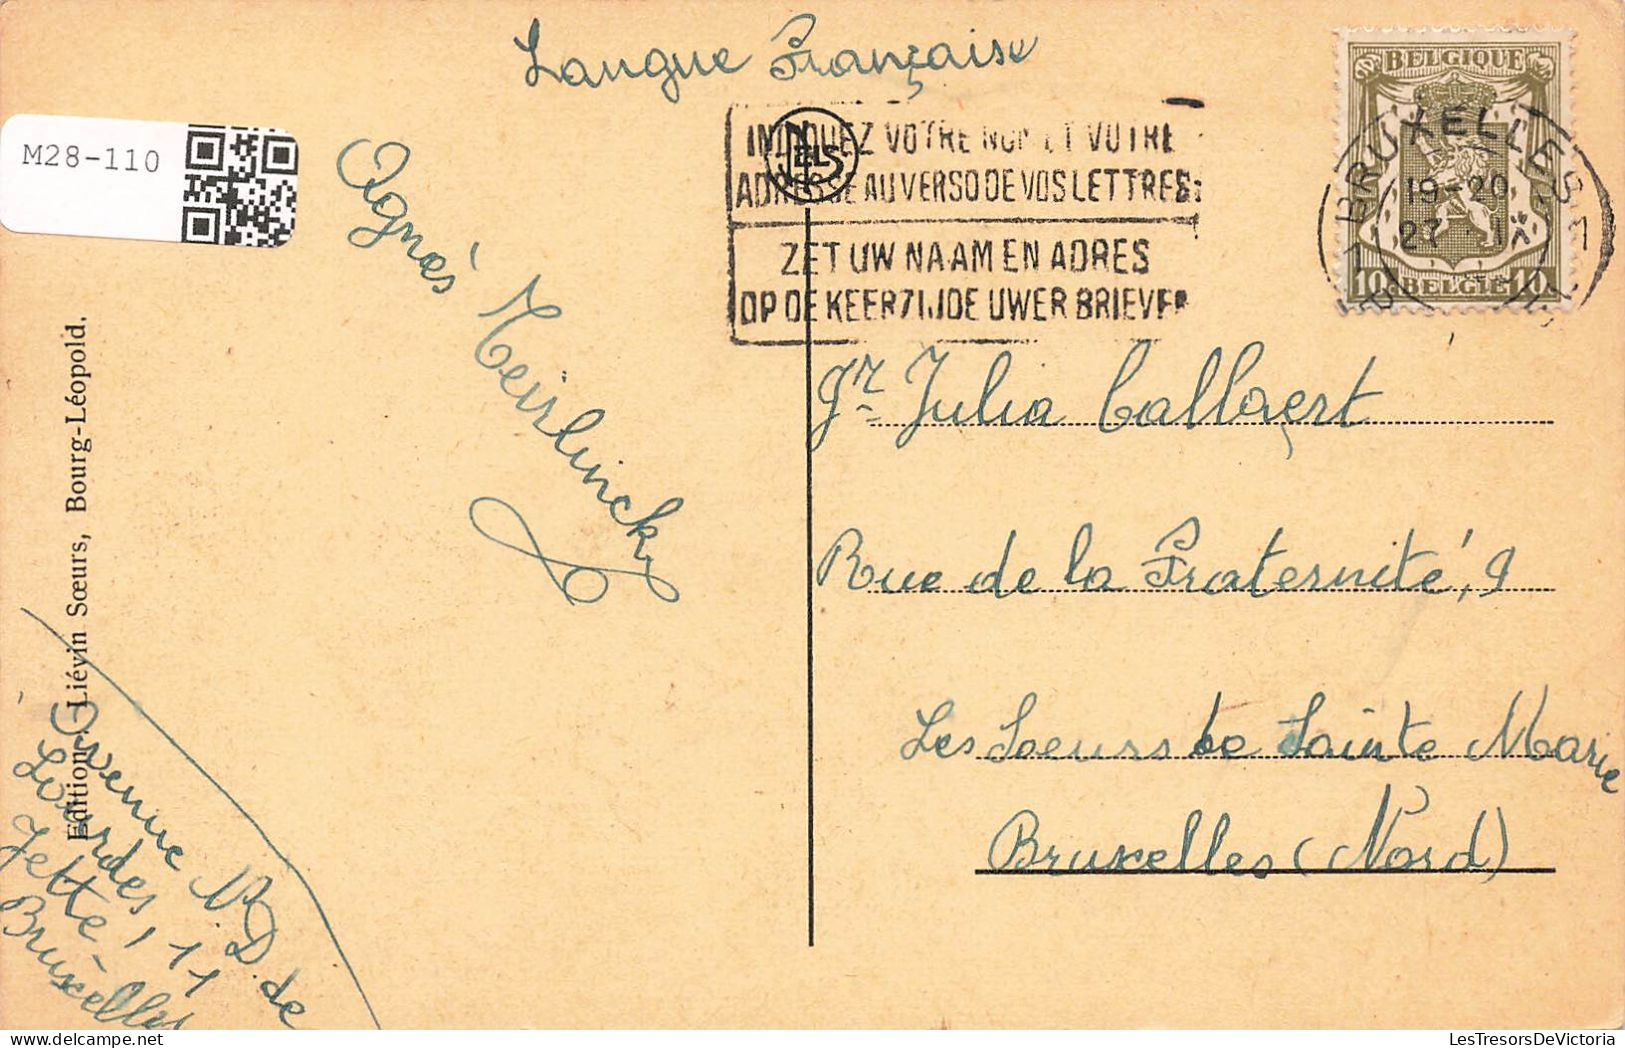 Langue Française
M28-110
NELS
INDIQUEZ VOTRE NOM ET VOTRE
ADRESSE AU VERSO DE VOS LETTRES
ZET UW NAAM EN ADRES
OP DE KEERZIJDE UWER BRIEVEN
BELGIQUE
BRUXELLES
19-20
27 IX
10 BELGIE 10
Agnès Meirlinck
Jr Julia Callaert
Rue de la Fraternité, 9
Les Soeurs de Sainte Marie
Bruxelles (Nord)
Edition: Liévin Sœurs, Bourg-Léopold.
Avenue N.D. de
Lourdes, 11
Jette
Bruxelles
LesTresorsDeVictoria